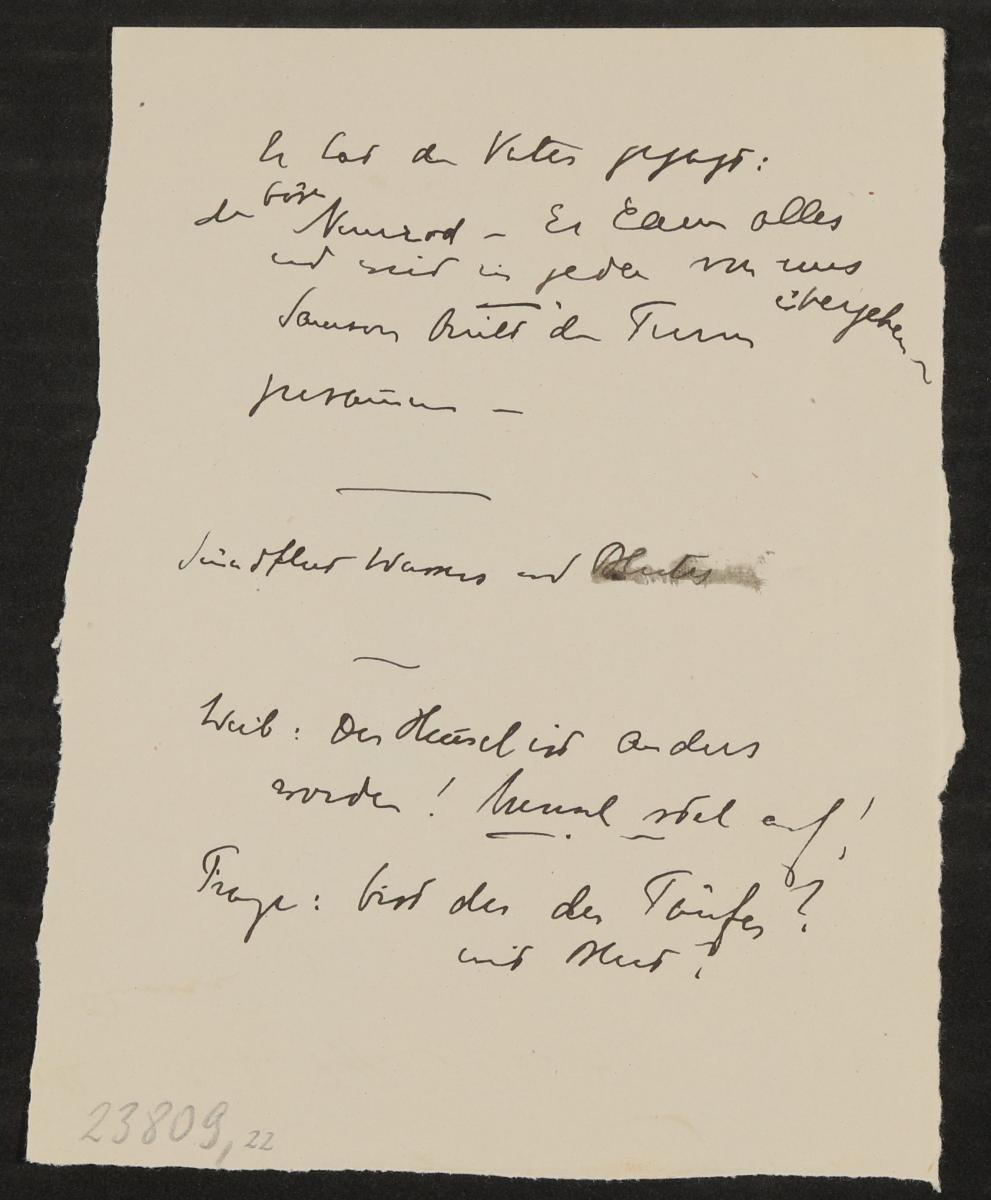 Er hat der Vater gesagt:
der böse Nimrod – Er kann alles
und wird in jeden von uns
übergehen
Samson brüllt der Turm
zusammen –
Sündflut Wassers und Blutes
Weib: Der Hansel ist anders
worden! Hansel steh auf!
Frage: bist du der Täufer?
mit Blut?
23809,22